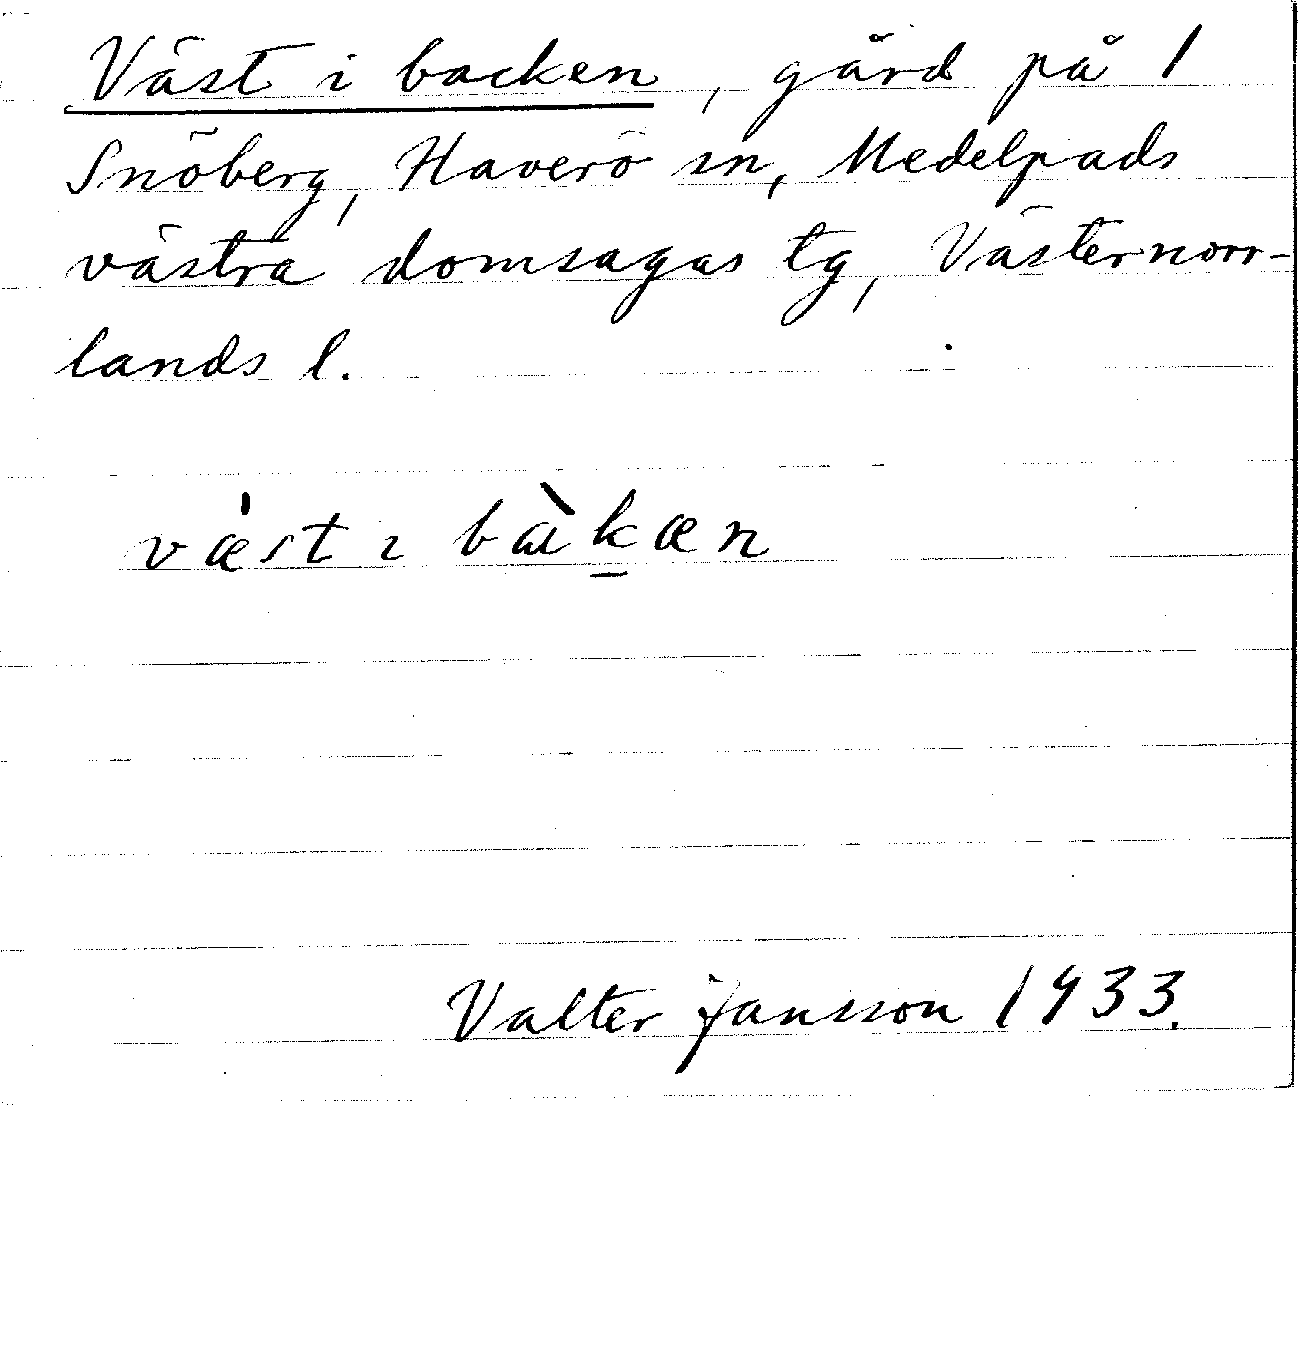 Väst i backen, gård på 1
Snöberg, Haverö sn, Medelpads
västra domsagas tg, Västernorr-
lands l.
væ̍st ı bὰk̲æn
Valter Jansson 1933.